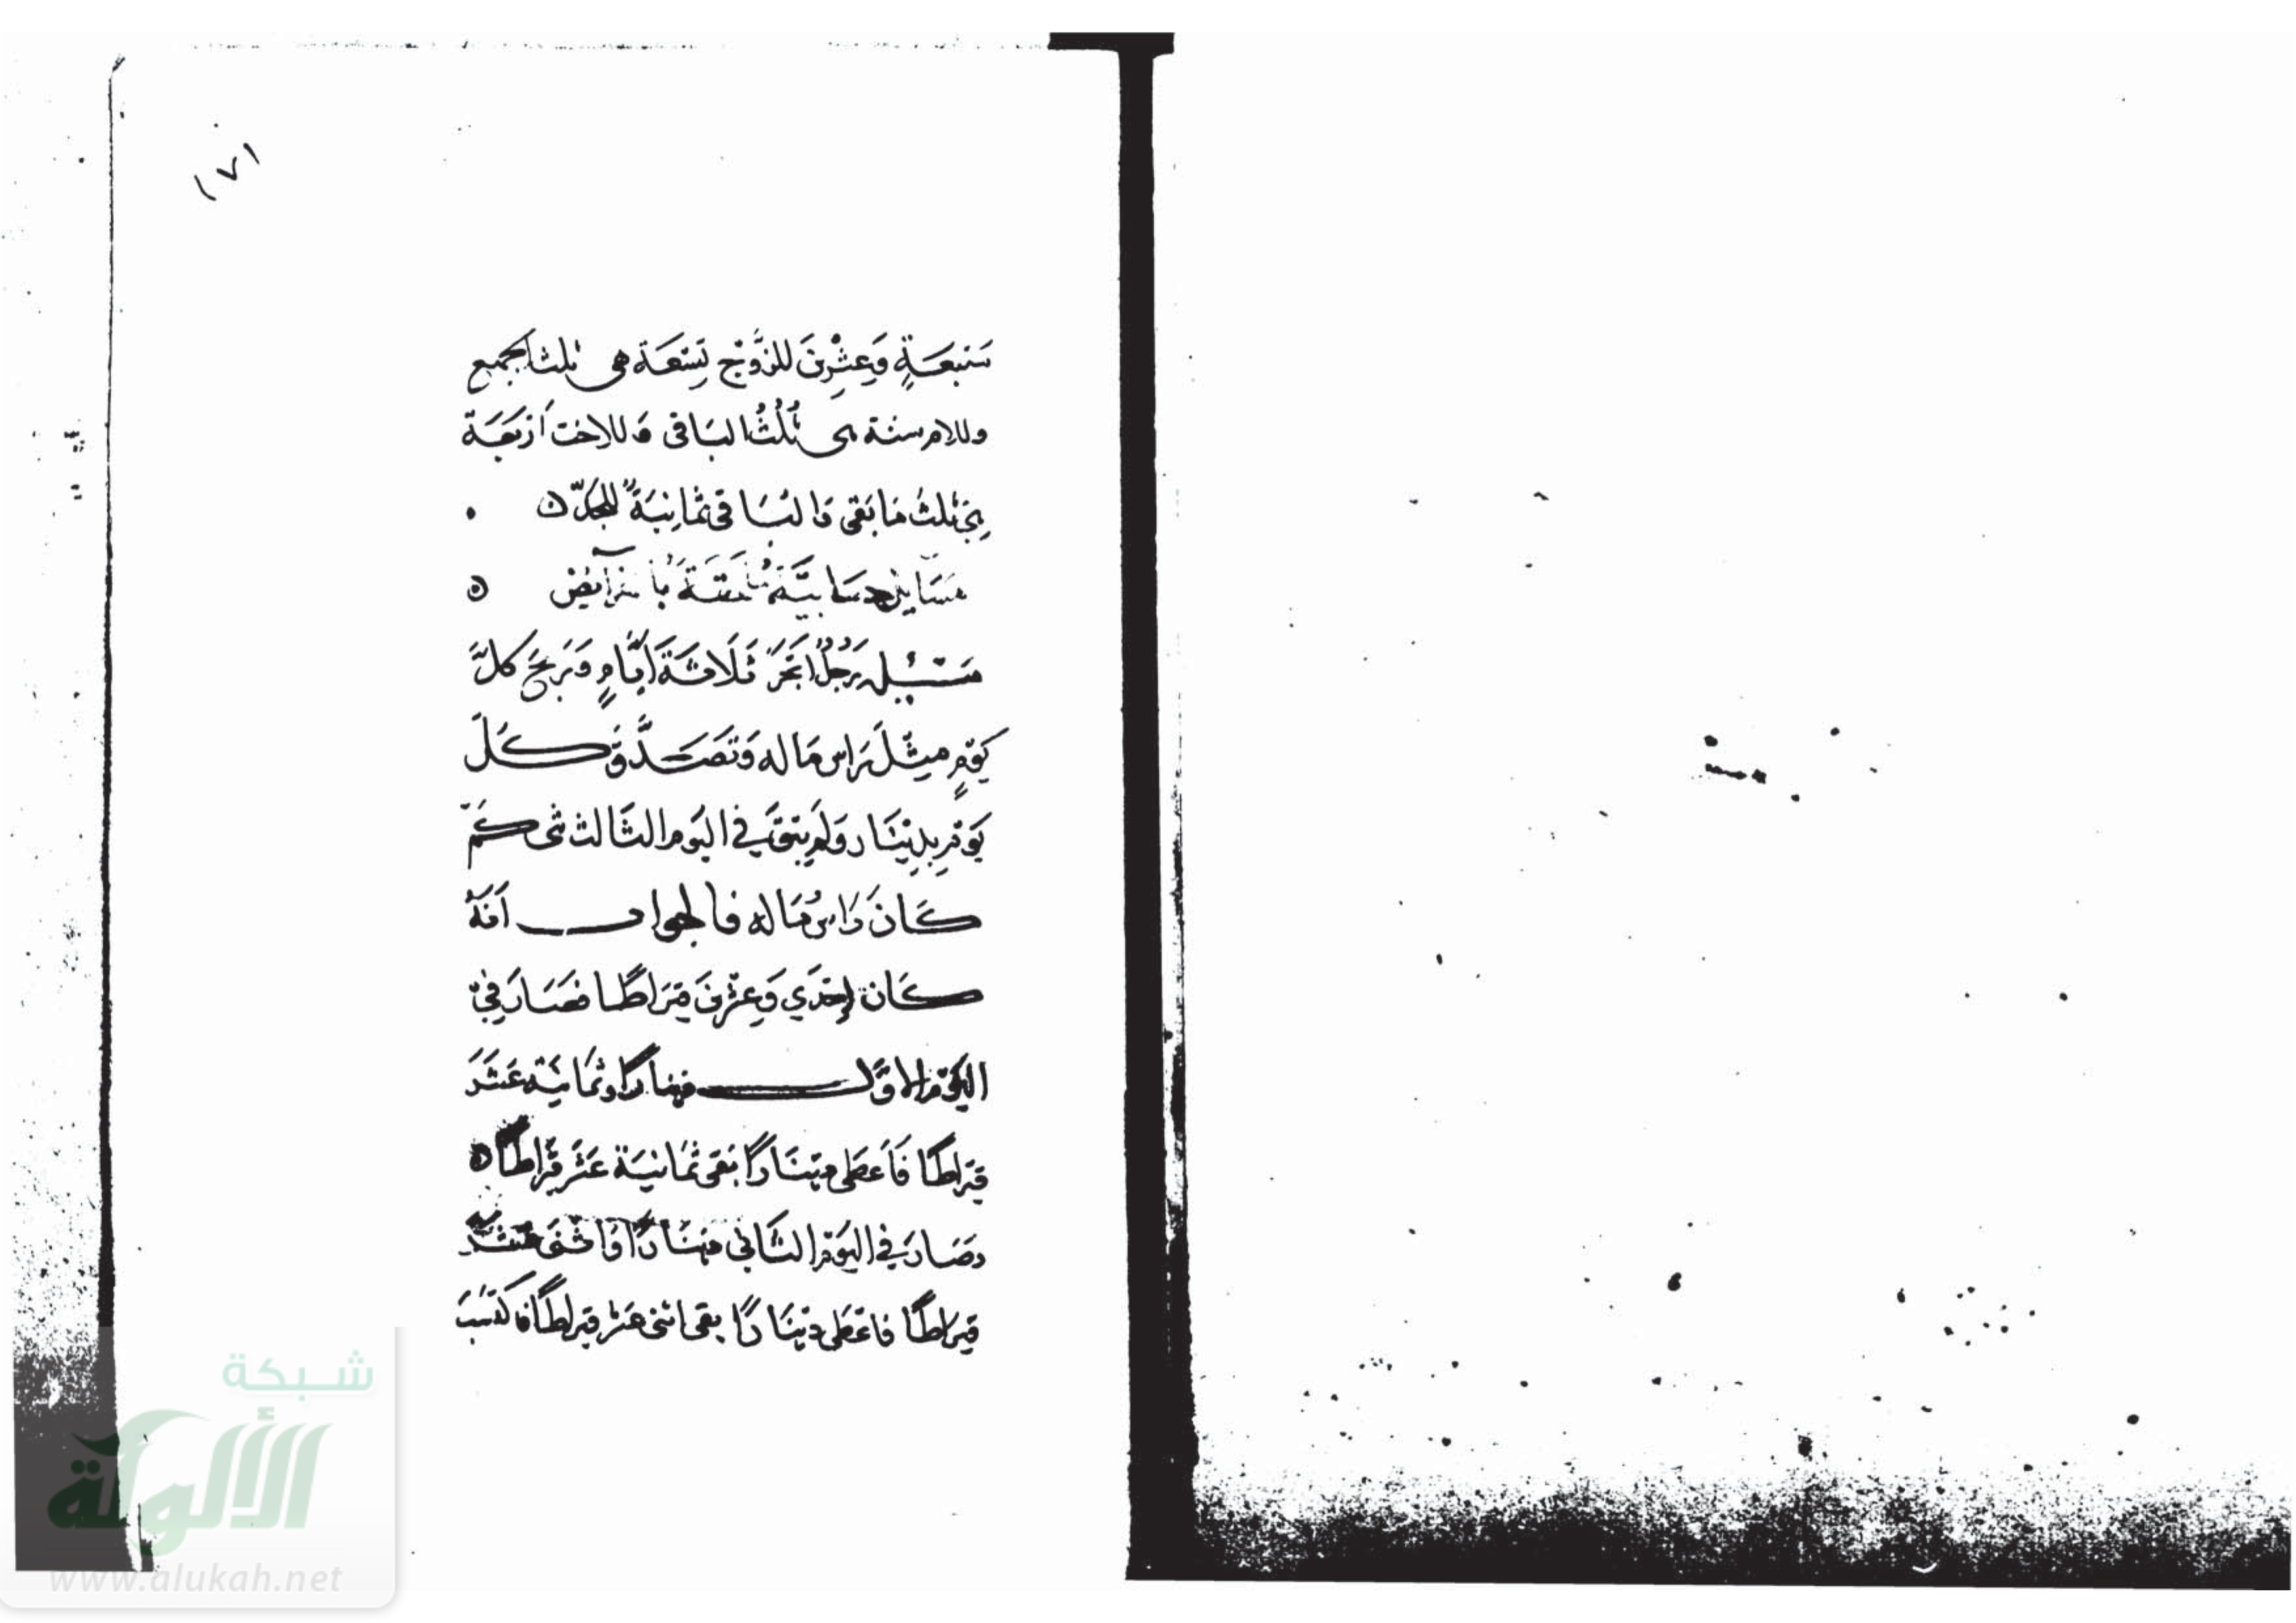 ١٧١
سَبعَةٍ وَعِشْرِينَ للزَّوْج تِسْعَة هى ثلث الجميع
وللام ستة هى ثُلُثُ البَاقى وَللاخت اَرْبَعَة
هِىَ ثلثُ مَا بَقى وَالبَاقى ثمَانِيَةٌ للجَدّ ه
مَسَايل حِسَابيَّة مُلحَقَة بالفرَآيض ه
مَسْئلة رَجُلٌ اتّجَرَ ثَلَاثَةَ اَيَّامٍ وَرَبِحَ كلَّ
يَوْمٍ مِثْلَ رَاس مَاله وَتَصَدَّقَ كُلَّ
يَوْمٍ بِدِيْنَار وَلَمْ يَبْقَ في اليَوم الثَالث شى كَمْ
كَانَ رَاسُ مَاله فالجواب اَنّهُ
كَان اِحْدَي وَعِشْرِينَ قِيْرَاطًا فصَارَ فِي
اليَوْم الاوَّل دينارًا وثمَانيَة عَشَرَ
قيْرَاطًا فَاَعْطَى دِيْنَارًا بَقى ثمَانيَة عَشَر قِيْرَاطًا ه
وَصَارَ في اليَوْم الثَاني دِيْنَارًا وَاثنَى عَشَرَ
قيرَاطًا فاعْطَى دِيْنَارًا بقى اثنى عَشر قيرَاطًا فاكتسَبَ
شبكة
الألوكة
www.alukah.net